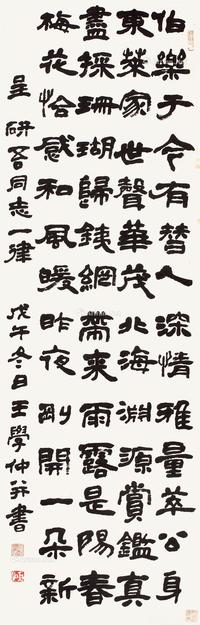 伯樂于今有替人深情雅量萃公身
東萊家世聲華茂北海淵源賞鑑真
盡採珊瑚歸銕網帶來雨露是陽春
梅花恰感和風暖昨夜剛開一朵新
呈研吾同志一律 戊午冬日王學仲并書